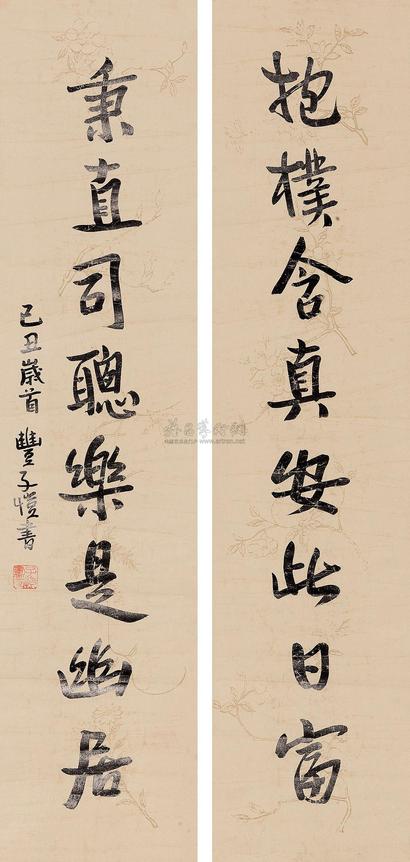 抱樸含真安此日富
秉直司聰樂是幽居
己丑歲首 豐子愷書